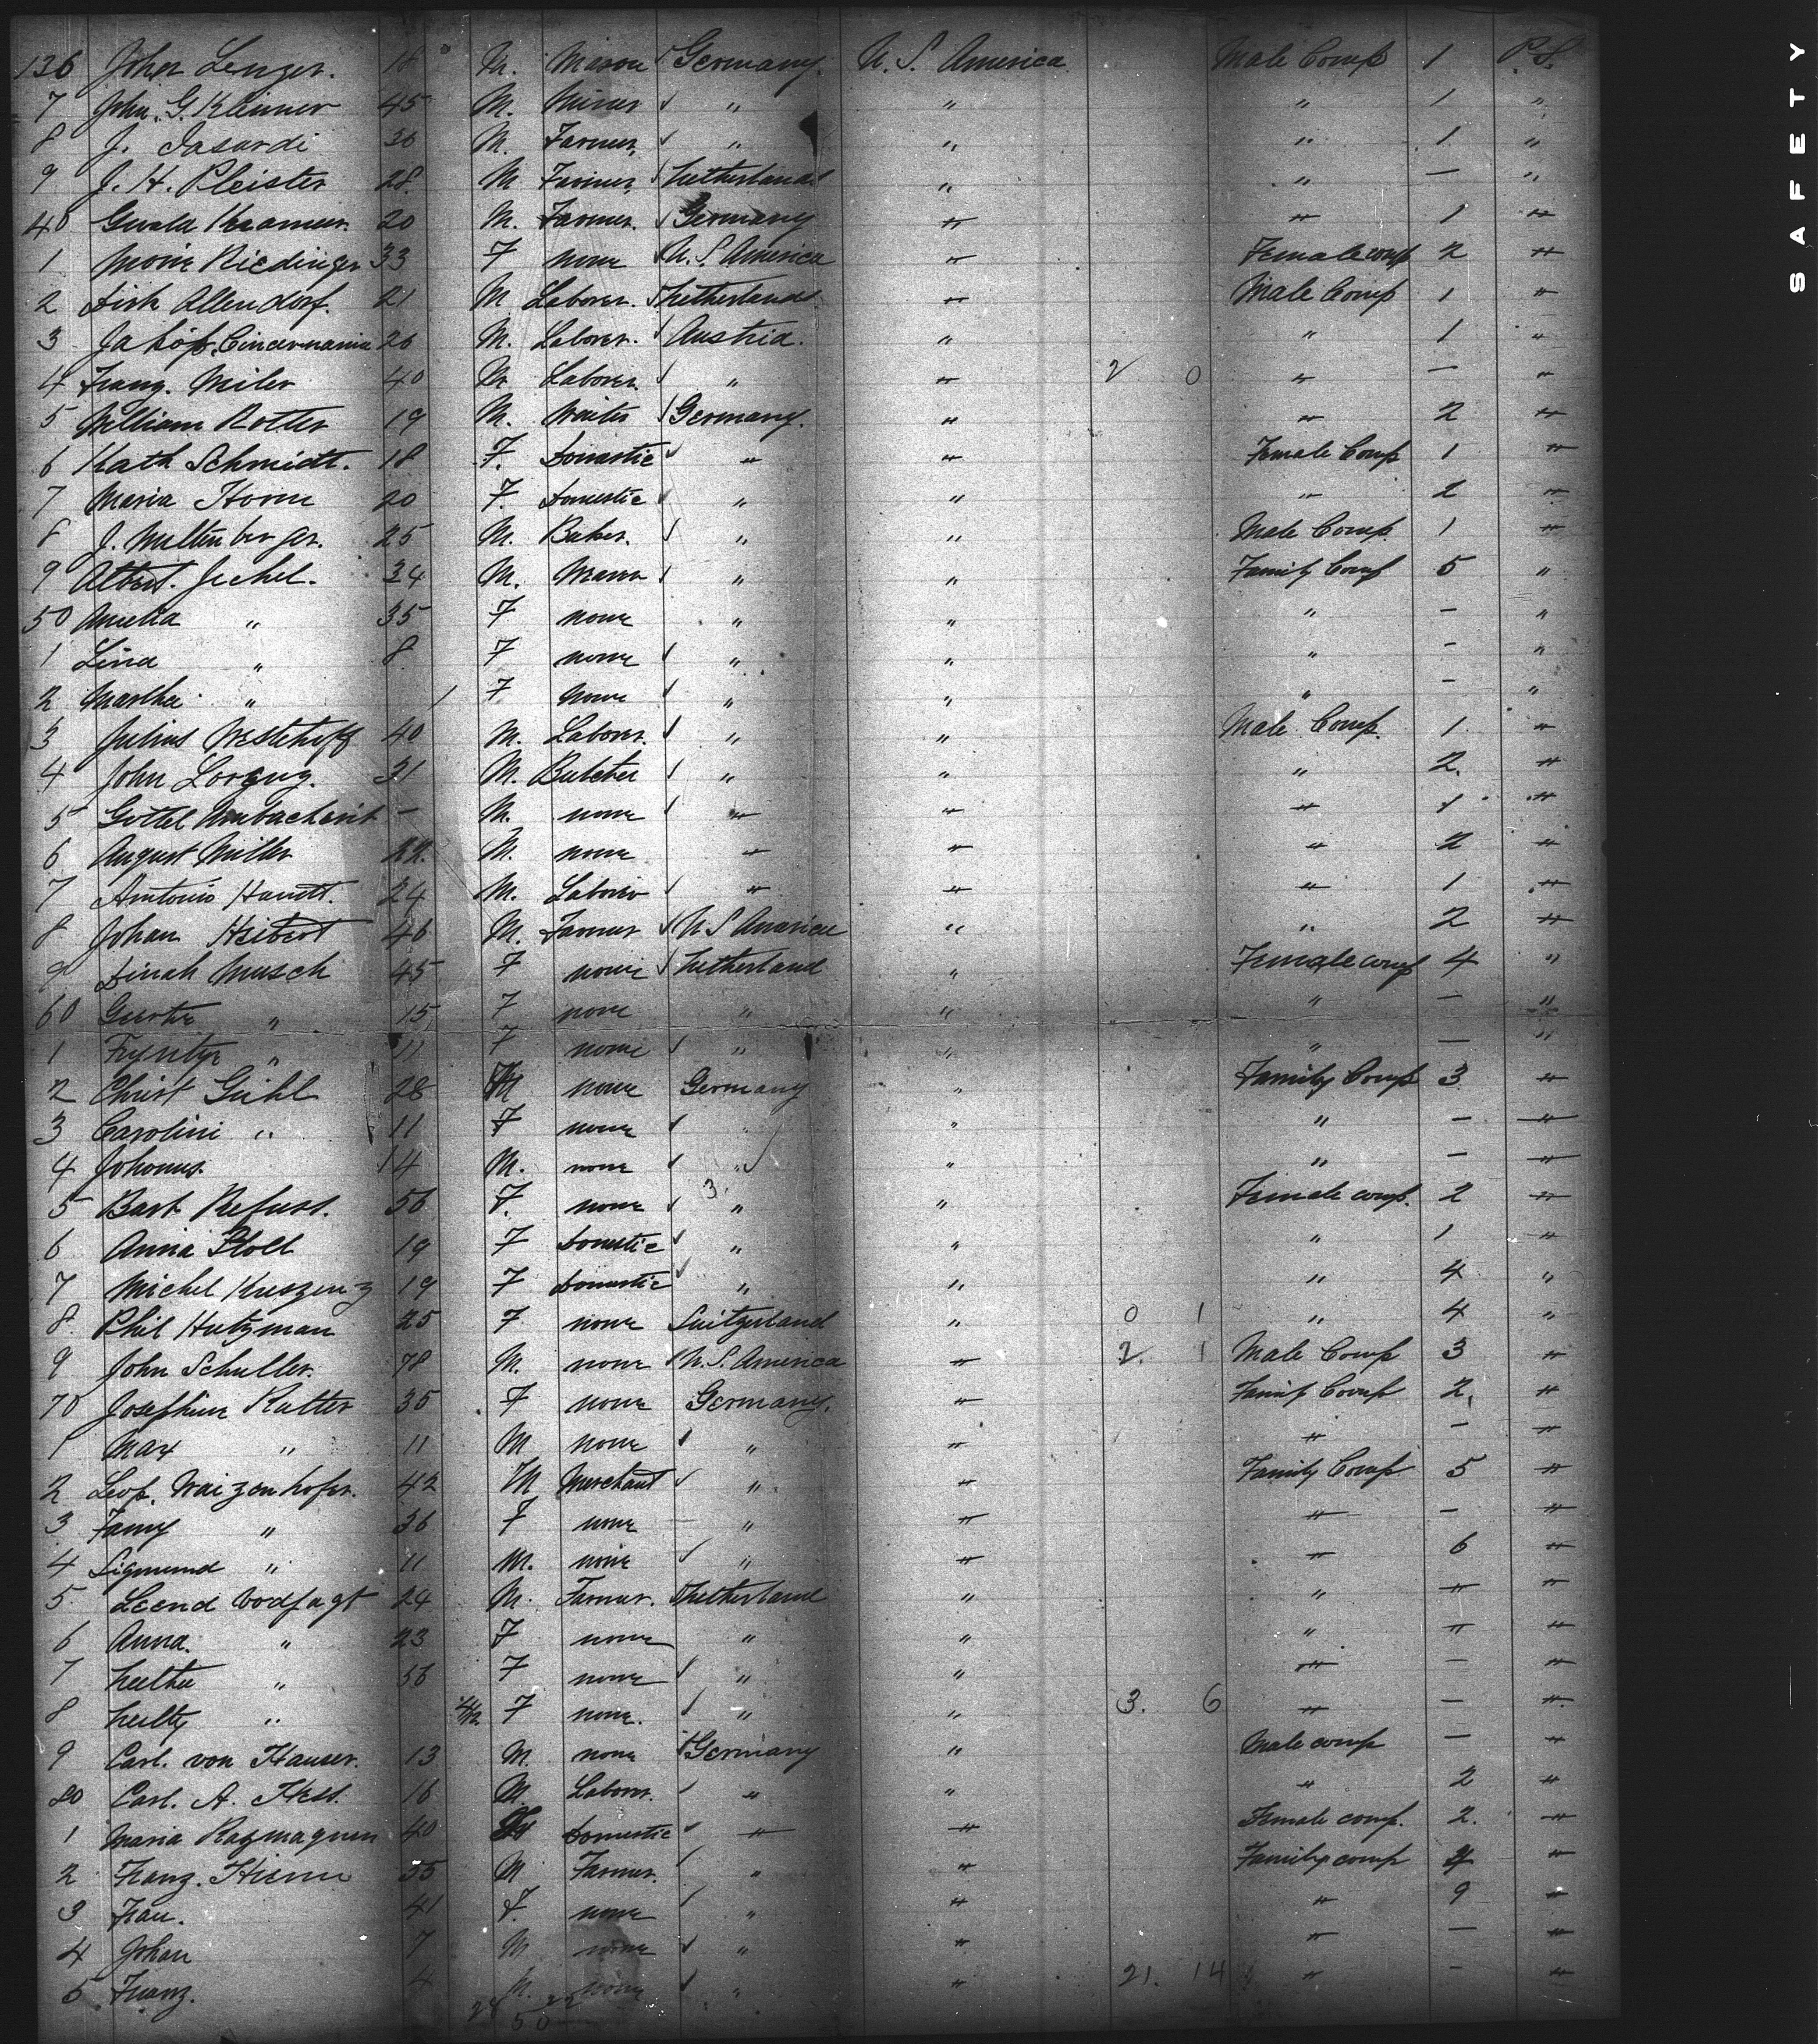 136 John Lenzer. 18 M. Mason Germany. U. S. America Male Comp 1 P. S.
7 John. G. Kleiner 45 M. Miner " " " 1 "
8 J. Iasardi 36 M. Farmer, " " " 1 "
9 J. H. Pleister 28. M Farmer, Netherlands " " — "
40 Gerald Kramer. 20 M. Farmer. Germany " " 1 "
1 Riedinger 33 F none U. S. America " Female comp 2 "
2 Dirk Allendorf. 21 M Laborer. Netherlands " Male Comp 1 "
3 Jakob 26 M. Laborer. Austria. " " 1 "
4 Franz. Miler 40 M Laborer. " " 2 0 " — "
5 William Rotter 19 M. Waiter Germany. " " 2 "
6 Kath Schmidt. 18 F. Domestic " " Female Comp 1 "
7 Maria Horn 20 F. Domestic " " " 2 "
8 J. Miltenberger. 25 M. Baker. " " Male Comp. 1 "
9 Albert. Jechel. 34 M. Mason " " Family Comp 5 "
50 Amelia " 35 F none " " " — "
1 Lina " 8 F none " " " — "
2 Martha " 1 F none " " " — "
3 Julius Westehoff 40 M. Laborer. " " Male Comp. 1 "
4 John Lorenz. 31 M. Butcher " " " 2. "
5 Gottel — M. none " " " 1 "
6 August Miller 22. M. none " " " 2 "
7 Antonio 24 M. Laborer " " " 1 "
8 Johan Heibert 46 M. Farmer U S America " " 2 "
9 Dinah Musch 45 F none Netherland " Female comp 4 "
60 Geertie " 15 F none " " " — "
1 " 11 F none " " " — "
2 Christ Guhl 28 M none Germany " Family Comp 3 "
3 Carolini " 11 F none " " — "
4 Johonus. 14 M. none " " " — "
5 Barb Refuss. 56 F. none 3. " " Female comp. 2 "
6 Anna Stoll 19 F Domestic " " " 1 "
7 Michel Kreszenz 19 F Domestic " " " 4 "
8. Phil Hutzman 25 F none Suitzerland " 0 1 " 4 "
9 John Schuller. 78 M. none U. S. America " 2. 1 Male Comp 3 "
70 Josephine Rutter 35 F none Germany. " Family Comp 2. "
1 Max " 11 M none " " " — "
2 Leop. Waizenhofer. 42 M Merchant " " Family Comp 5 "
3 Fanny " 36 F none — " " " — "
4 Sigmund " 11 M. none " " " 6 "
5. Leend Vodfagt 24 M. Farmer. Netherland " " " "
6 Anna. " 23 F none " " " " "
7 Neeltie " 56 F none " " " — "
8 Neelty " 4/12 F none. " " 3. 6 " — "
9 Carl. von Hauser. 13 M. none Germany " Male comp — "
80 Carl. A. Hess. 16 M. Laborer. " " " 2 "
1 Maria 40 F Domestic " " Female comp. 2. "
2 Franz. 55 M Farmer. " " Family comp "
3 Frau. 41 F. none " " " 9 "
4 Johan 7 M none " " " — "
5 Franz. 4 M. none " " 21. 14 " — "
28 22
50
SAFETY